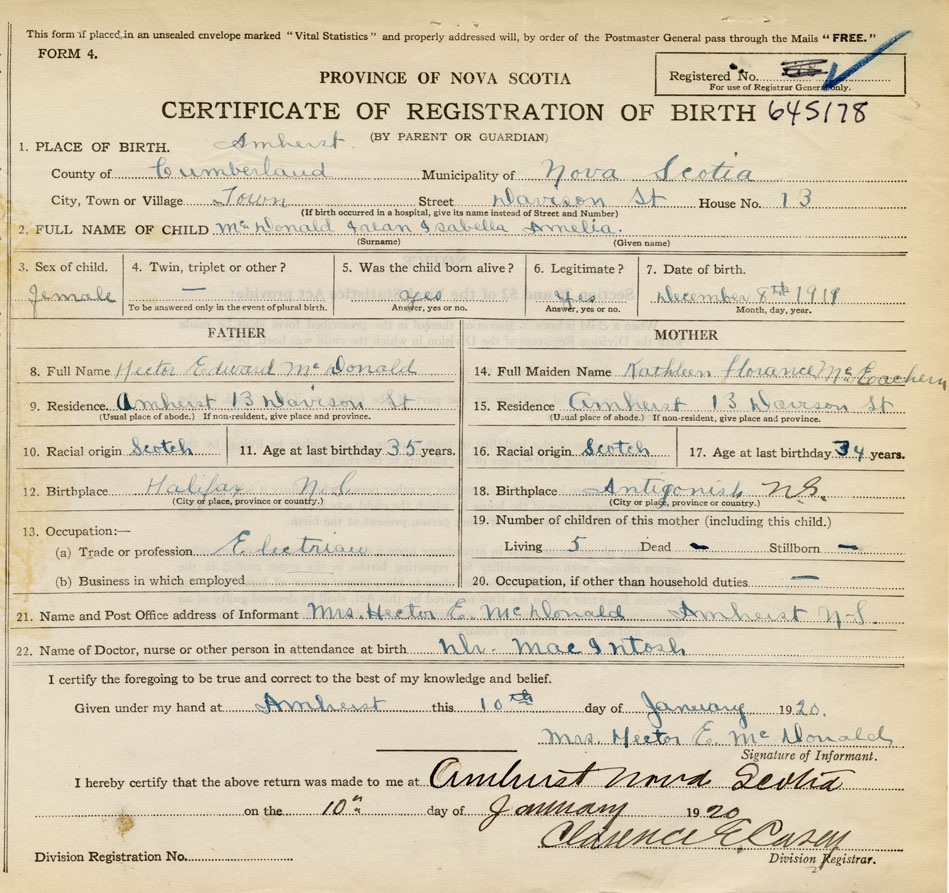 This form if placed in an unsealed envelope marked "Vital Statistics" and properly addressed will, by order of the Postmaster General pass through the Mails "FREE."
FORM 4.
PROVINCE OF NOVA SCOTIA
Registered No.
For use of Registrar General only.
CERTIFICATE OF REGISTRATION OF BIRTH 645178
(BY PARENT OR GUARDIAN)
1. PLACE OF BIRTH. Amherst
County of Cumberland Municipality of Nova Scotia
City, Town or Village Town Street Davison St House No. 13
(If birth occurred in a hospital, give its name instead of Street and Number)
2. FULL NAME OF CHILD McDonald Irean Isabella Amelia.
(Surname) (Given name)
3. Sex of child. 4. Twin, triplet or other? 5. Was the child born alive? 6. Legitimate? 7. Date of birth.
Female — yes Yes December 8th 1919
To be answered only in the event of plural birth. Answer, yes or no. Answer, yes or no. Month, day, year.
FATHER MOTHER
8. Full Name Hector Edward McDonald 14. Full Maiden Name Kathleen Florance McEachern
9. Residence. Amherst 13 Davison St 15. Residence Amherst 13 Davison St
(Usual place of abode.) If non-resident, give place and province. (Usual place of abode.) If non-resident, give place and province.
10. Racial origin Scotch 11. Age at last birthday 35 years. 16. Racial origin Scotch 17. Age at last birthday 34 years.
12. Birthplace Halifax N.S. 18. Birthplace Antigonish N.S.
(City or place, province or country.) (City or place, province or country.)
19. Number of children of this mother (including this child.)
13. Occupation:—
(a) Trade or profession Electrian Living 5 Dead — Stillborn —
(b) Business in which employed 20. Occupation, if other than household duties —
21. Name and Post Office address of Informant Mrs. Hector E. McDonald Amherst N-S.
22. Name of Doctor, nurse or other person in attendance at birth Dr. MacIntosh
I certify the foregoing to be true and correct to the best of my knowledge and belief.
Given under my hand at Amherst this 10th day of January 1920.
Mrs. Hector E. McDonald
Signature of Informant.
I hereby certify that the above return was made to me at Amherst Nova Scotia
on the 10th day of January 1920
Clarence E. Casey
Division Registration No. Division Registrar.